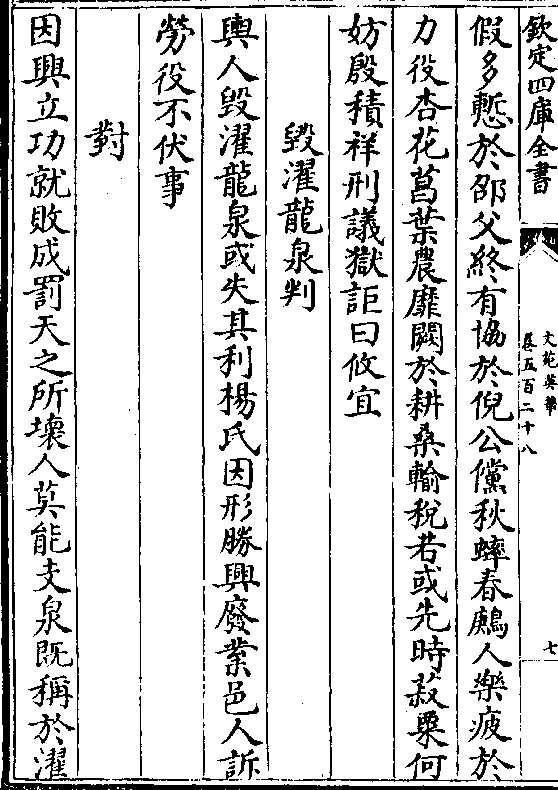 欽定四庫全書
文苑英華
卷五百二十八
七
假多慙於邵父終有協於倪公儻秋蟀春鳸人樂疲於
力役杏花菖葉農靡闕於耕桑輸稅若或先時菽粟何
妨殷積祥刑議獄詎曰攸宜
毀濯龍泉判
輿人毀濯龍泉或失其利楊氏因形勝興廢業邑人訴
勞役不伏事
對
因興立功就敗成罰天之所壞人莫能支泉既稱於濯